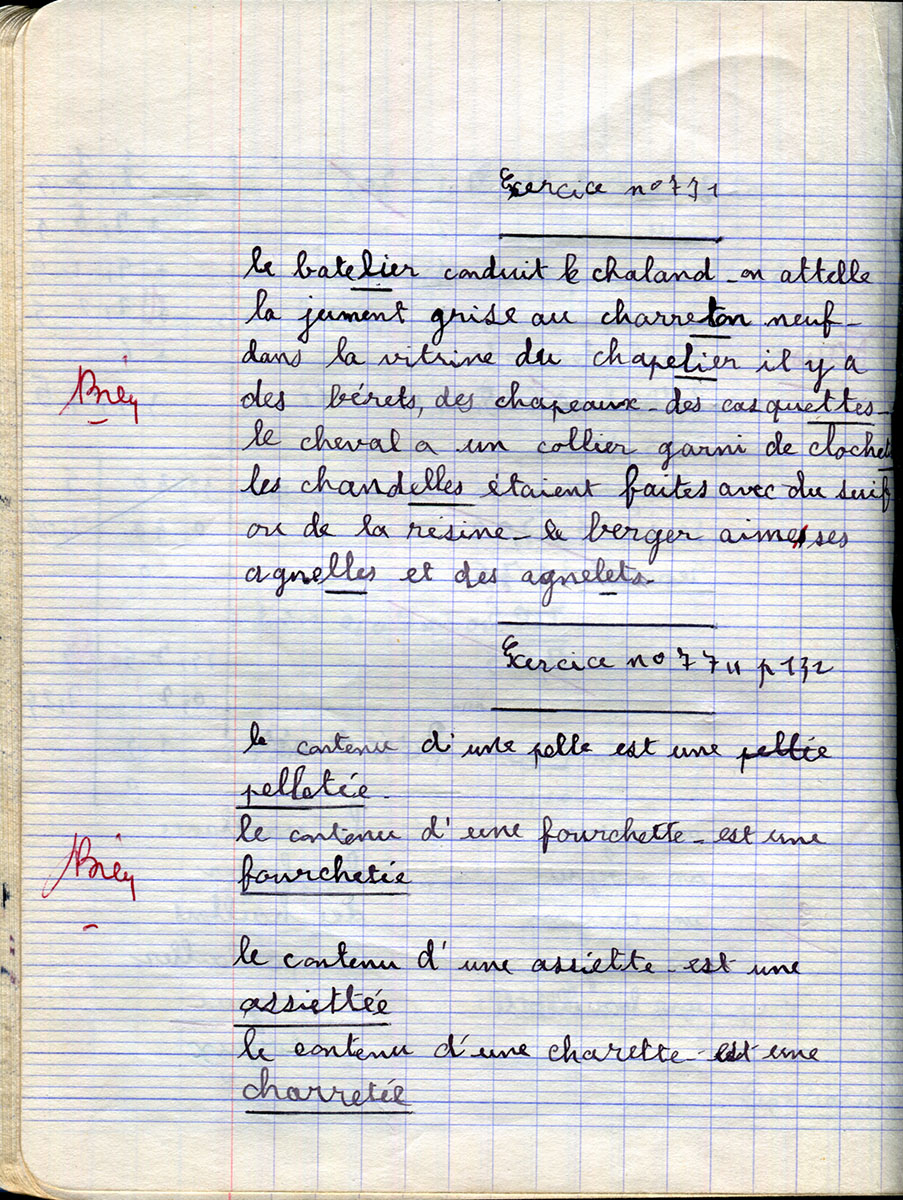 Exercice no 771
le batelier conduit le chaland - on attelle
la jument grise au charreton neuf -
dans la vitrine du chapelier il y a
Bien
des bérets, des chapeaux - des casquettes -
le cheval a un collier garni de clochet
les chandelles étaient faites avec du suif
ou de la résine - le berger aime ses
agnelles et des agnelets -
Exercice no 774 p 132
le contenu d'une pelle est une peltie
pelletée -
le contenu d'une fourchette - est une
Bien
fourchetée
le contenu d'une assiette - est une
assiettée
le contenu d'une charette - est une
charretée